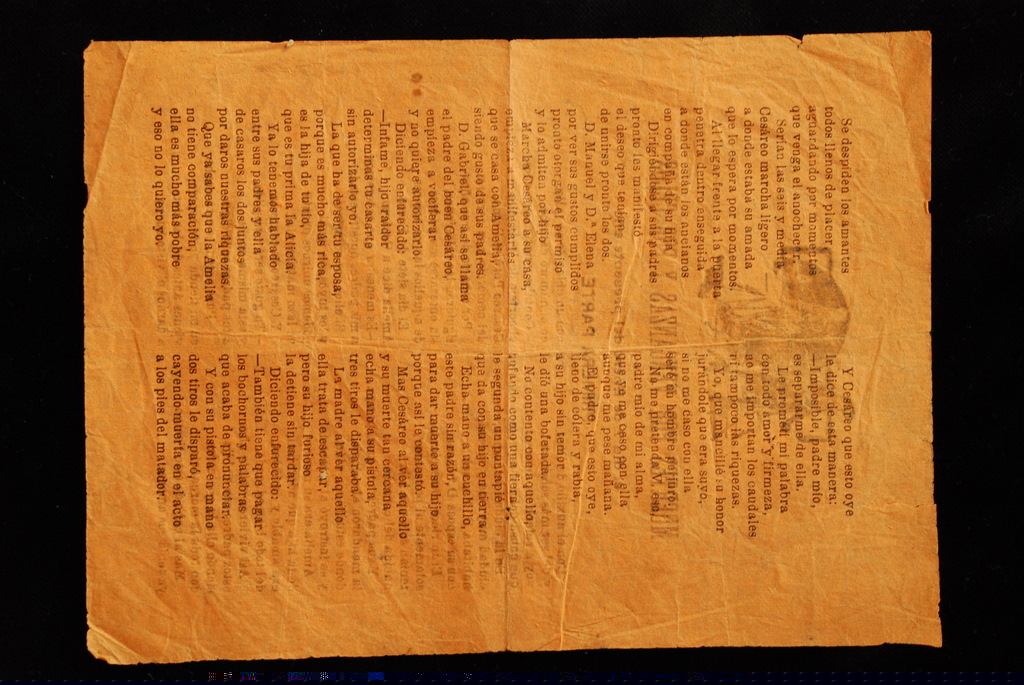 Se despiden los amantes
todos llenos de placer
aguardando por momentos
que venga el anochecer.
Serían las seis y media
Cesáreo marcha ligero
a donde estaba su amada
que lo espera por momentos.
Al llegar frente a la puerta
penetra dentro enseguida
a donde están los ancianos
en compañía de su hija.
Dirigiéndose a sus padres
pronto les manifestó
el deseo que tenían
de unirse pronto los dos.
D. Manuel y D.ª Elena
por ver sus gustos cumplidos
pronto otorgan el permiso
y lo admiten por hijo
Marcha Cesáreo a su casa,
empieza a manifestarles
que se casa con Amelia,
siendo gusto de sus padres.
D. Gabriel, que así se llama
el padre del buen Cesáreo,
empieza a vociferar
y no quiere autorizarlo.
Diciendo enfurecido:
—Infame, hijo traidor
determinas tu casarte
sin autorizarlo yo.
La que ha de ser tu esposa,
porque es mucho más rica,
es la hija de tu tío,
que es tu prima la Alicia.
Ya lo tenemos hablado
entre sus padres y ella
de casaros los dos juntos
por daros nuestras riquezas.
Que ya sabes que la Amelia
no tiene comparación,
ella es mucho más pobre
y eso no lo quiero yo.
Y Cesáreo que esto oye
le dice de esta manera:
—Imposible, padre mío,
es separarme de ella.
Le prometí mi palabra
con todo amor y firmeza,
no me importan los caudales
ni tampoco las riquezas.
Yo, que mancillé su honor
jurándole que era suyo,
si no me caso con ella
seré un hombre perjuro.
No me pretenda V. eso
padre mío de mi alma,
que yo me caso con ella
aunque me pese mañana.
El padre, que esto oye,
lleno de cólera y rabia,
a su hijo sin temor
le dió una bofetada.
No contento con aquello,
bufando como una fiera,
le segunda un puntapié
que da con su hijo en tierra
Echa mano a un cuchillo,
este padre sin razón,
para dar muerte a su hijo
porque así le contestó.
Mas Cesáreo al ver aquello
y su muerte tan cercana
echa mano a su pistola,
tres tiros le disparaba.
La madre al ver aquello
ella trata de escapar,
pero su hijo furioso
la detiene sin tardar.
Diciendo enfurecido:
—También tiene que pagar
los bochornos y palabras
que acaba de pronunciar.
Y con su pistola en mano
dos tiros le disparó,
cayendo muerta en el acto
a los pies del matador.